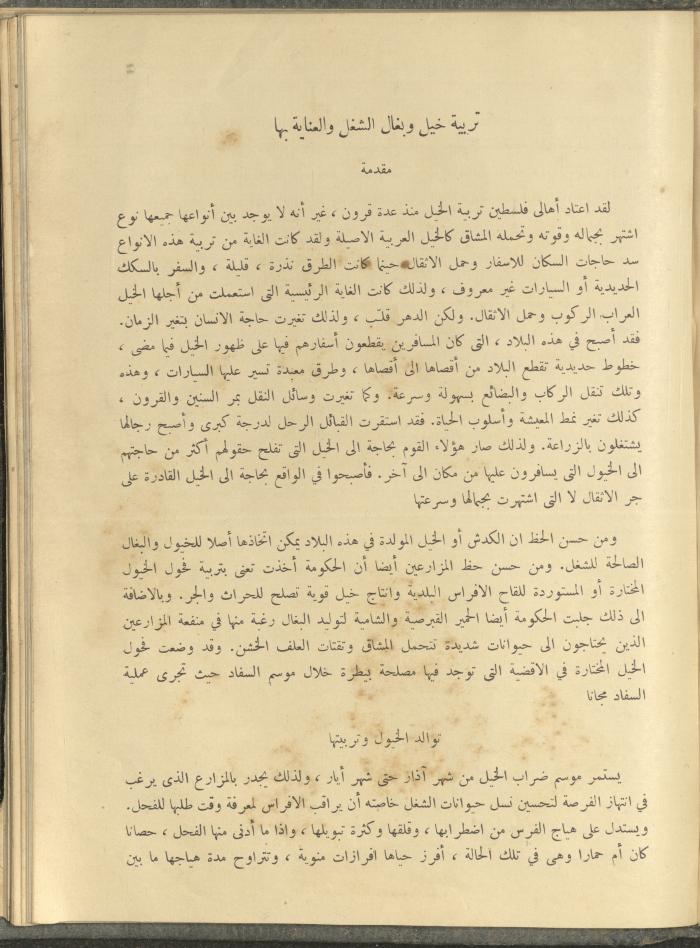 تربية خيل وبغال الشغل والعناية بها
مقدمة
لقد اعتاد أهالى فلسطين تربية الخيل منذ عدة قرون ، غير أنه لا يوجد بين أنواعها جميعها نوع
اشتهر بجماله وقوته وتحمله المشاق كالخيل العربية الاصيلة ولقد كانت الغاية من تربية هذه الانواع
سد حاجات السكان للاسفار وحمل الاثقال حينما كانت الطرق نذرة ، قليلة ، والسفر بالسكك
الحديدية أو السيارات غير معروف ، ولذلك كانت الغاية الرئيسية التى استعملت من أجلها الخيل
العراب الركوب وحمل الاثقال. ولكن الدهر قلّب ، ولذلك تغيرت حاجة الانسان بتغير الزمان.
فقد أصبح في هذه البلاد ، التى كان المسافرين يقطعون أسفارهم فيها على ظهور الخيل فيما مضى ،
خطوط حديدية تقطع البلاد من أقصاها الى أقصاها ، وطرق معبدة تسير عليها السيارات ، وهذه
وتلك تنقل الركاب والبضائع بسهولة وسرعة. وكما تغيرت وسائل النقل بمر السنين والقرون ،
كذلك تغير نمط المعيشة وأسلوب الحياة. فقد استقرت القبائل الرحل لدرجة كبرى وأصبح رجالها
يشتغلون بالزراعة. ولذلك صار هؤلاء القوم بحاجة الى الخيل التى تفلح حقولهم أكثر من حاجتهم
الى الخيول التى يسافرون عليها من مكان الى آخر. فأصبحوا في الواقع بحاجة الى الخيل القادرة على
جر الاثقال لا التى اشتهرت بجمالها وسرعتها
ومن حسن الحظ ان الكدش أو الخيل المولدة في هذه البلاد يمكن اتخاذها أصلا للخيول والبغال
الصالحة للشغل. ومن حسن حظ المزارعين أيضا أن الحكومة أخذت تعنى بتربية فحول الخيول
المختارة أو المستوردة للقاح الافراس البلدية وانتاج خيل قوية تصلح للحراث والجر. وبالاضافة
الى ذلك جلبت الحكومة أيضا الحمير القبرصية والشامية لتوليد البغال رغبة منها في منفعة المزارعين
الذين يحتاجون الى حيوانات شديدة تتحمل المشاق وتقتات العلف الخشن. وقد وضعت فحول
الخيل المختارة في الاقضية التى توجد فيها مصلحة بيطرة خلال موسم السفاد حيث تجرى عملية
السفاد مجانا
توالد الخيول وتربيتها
يستمر موسم ضراب الخيل من شهر آذار حتى شهر أيار ، ولذلك يجدر بالمزارع الذى يرغب
في انتهاز الفرصة لتحسين نسل حيوانات الشغل خاصته أن يراقب الافراس لمعرفة وقت طلبها للفحل.
ويستدل على هياج الفرس من اضطرابها ، وقلقها وكثرة تبويلها ، واذا ما أدنى منها الفحل ، حصانا
كان أم حمارا وهى في تلك الحالة ، أفرز حياها افرازات منوية ، وتتراوح مدة هياجها ما بين